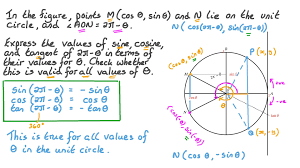 In the figure, points M(cos θ, sin θ) and N lie on the unit
circle, and ∠AON = 2π - θ.
N (cos(2π-θ), sin(2π-θ))
Express the values of sine, cosine,
and tangent of 2π-θ in terms of
their values for θ. Check whether
this is valid for all values of
θ.
sin (2π-θ) = - sin θ
cos (2π-θ) = cos θ
tan (2π-θ) = - tan θ
360°
This is true for all values of
θ in the unit circle.
P (x, y)
(cos θ, sin θ)
+ve
-ve
Q (x, -y)
N (cos θ, -sin θ)